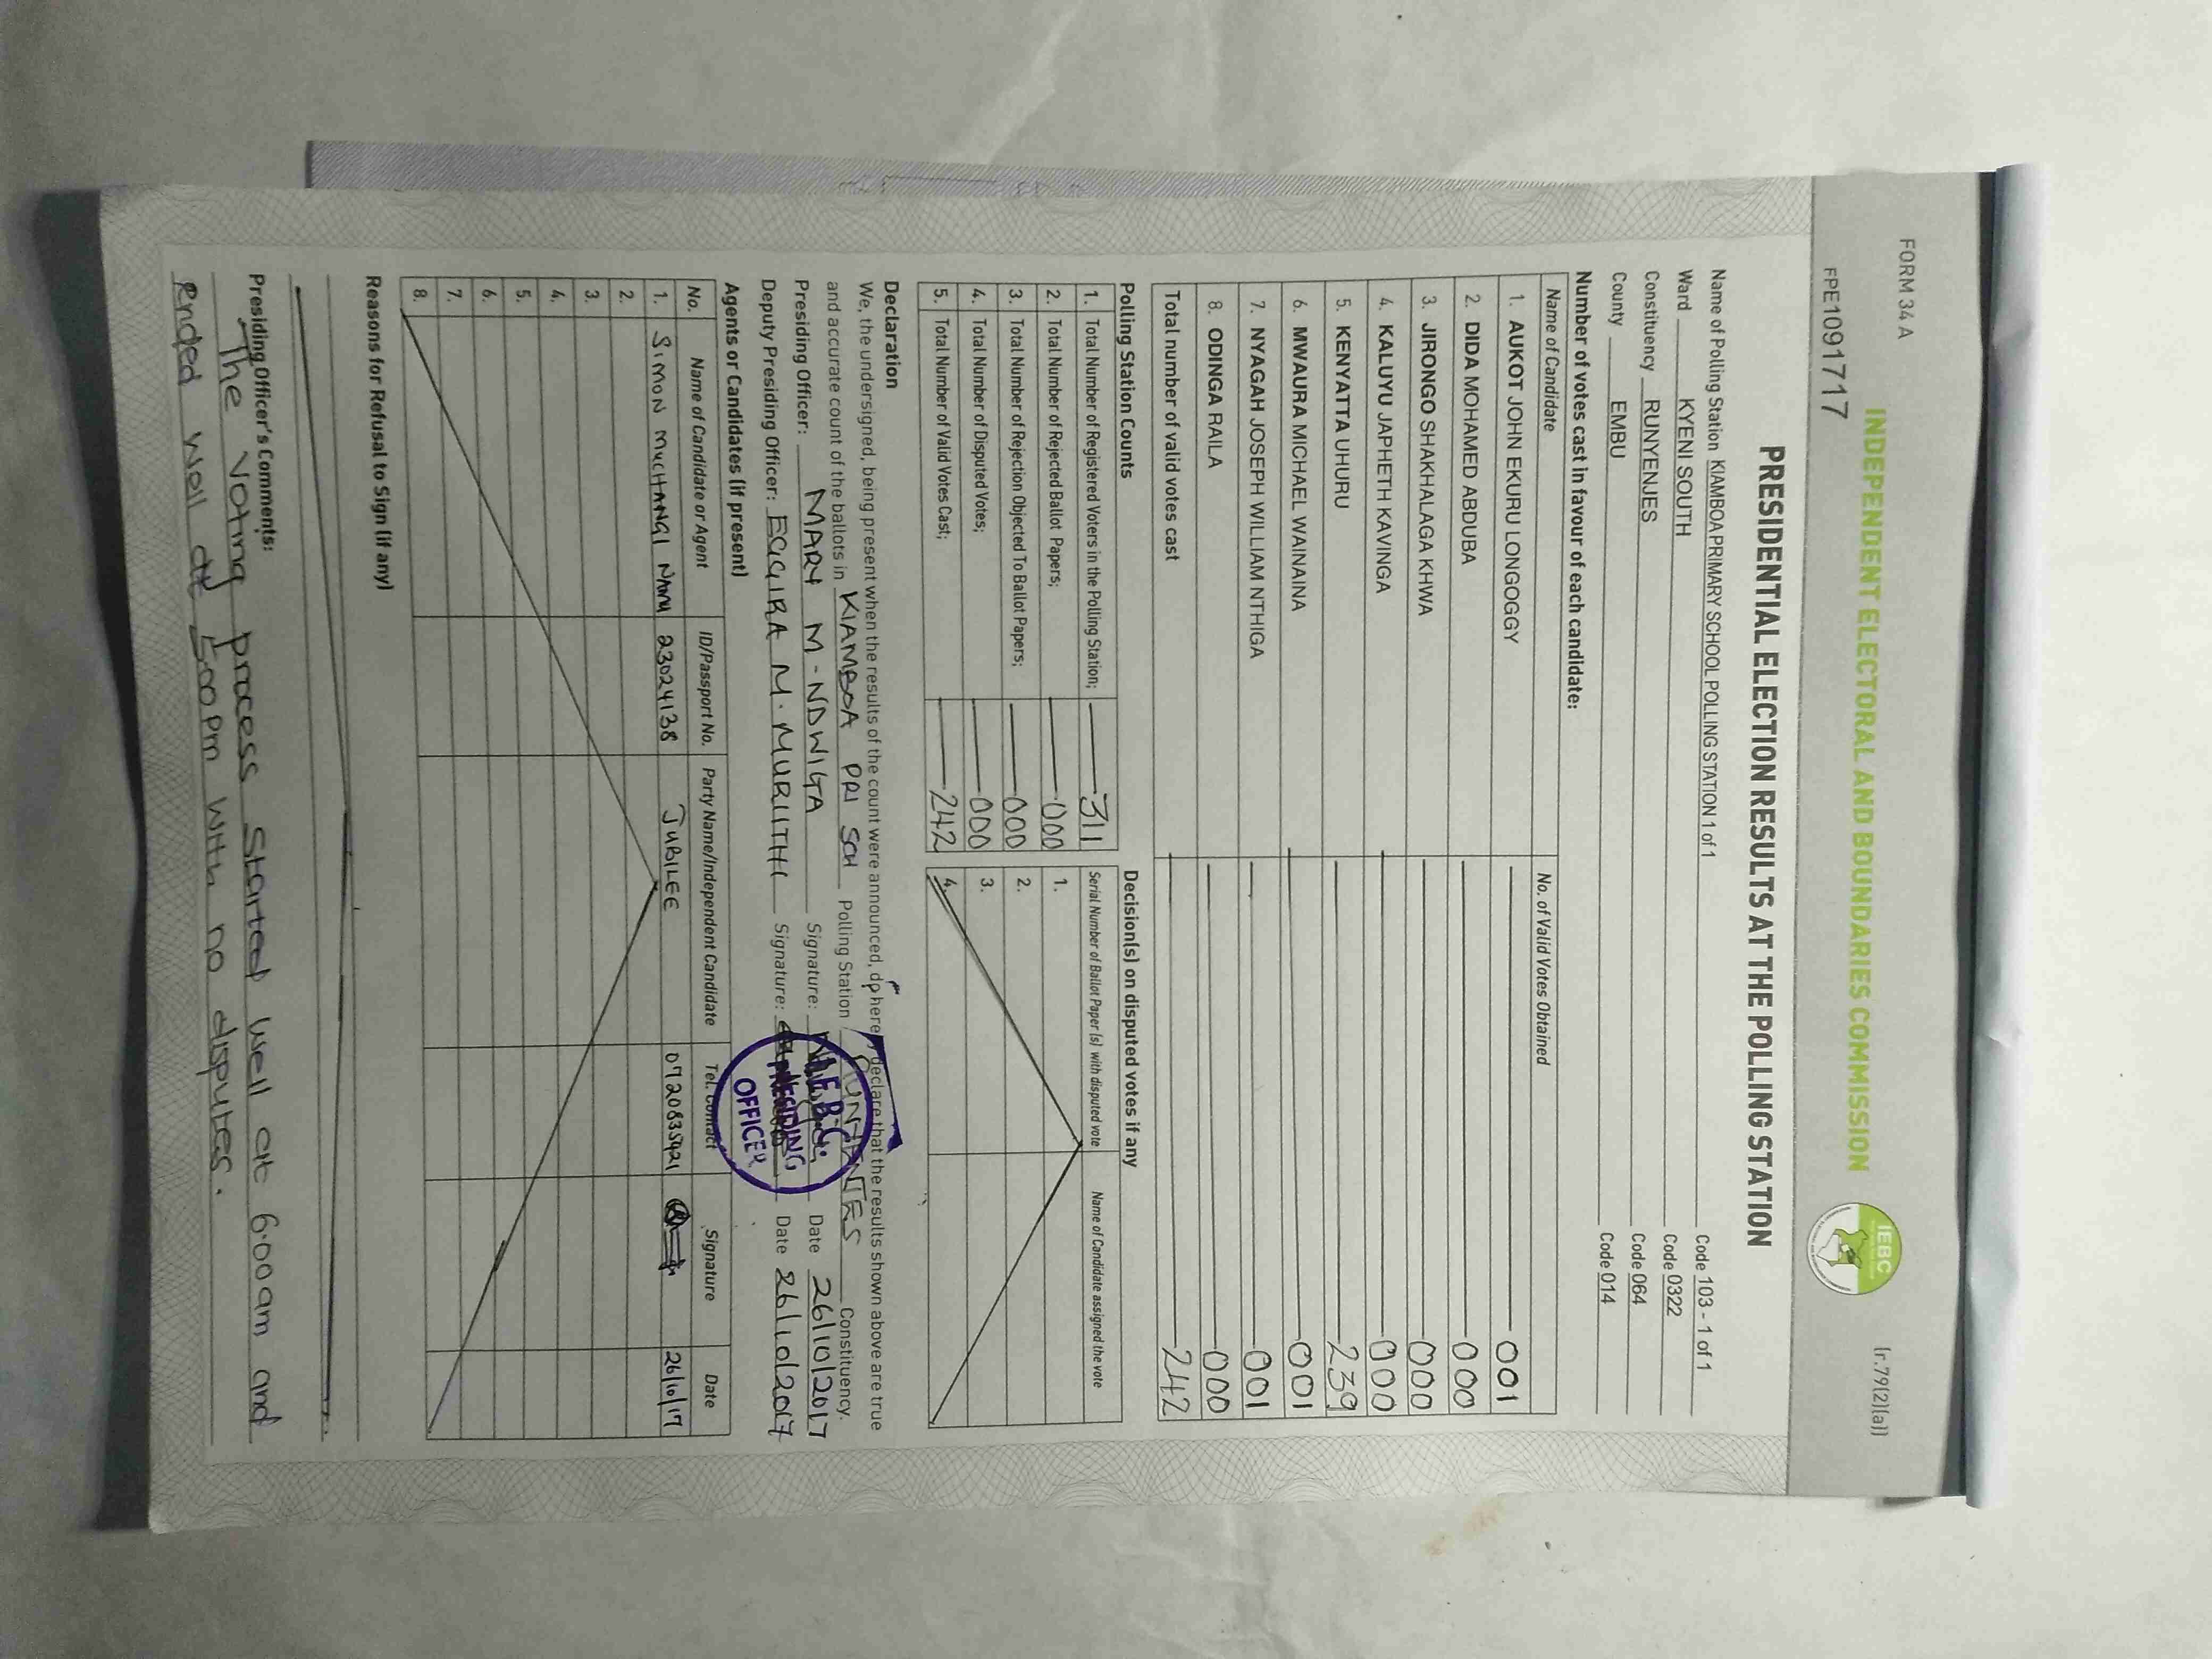 FORM 34 A
(r.79(2)(a))
INDEPENDENT ELECTORAL AND BOUNDARIES COMMISSION
IEBC
FPE1091717
PRESIDENTIAL ELECTION RESULTS AT THE POLLING STATION
Name of Polling Station KIAMBOA PRIMARY SCHOOL POLLING STATION 1 of 1 Code 103 - 1 of 1
Ward KYENI SOUTH Code 0322
Constituency RUNYENJES Code 064
County EMBU Code 014
Number of votes cast in favour of each candidate:
Name of Candidate No. of Valid Votes Obtained
1. AUKOT JOHN EKURU LONGOGGY 001
2. DIDA MOHAMED ABDUBA 000
3. JIRONGO SHAKHALAGA KHWA 000
4. KALUYU JAPHETH KAVINGA 000
5. KENYATTA UHURU 239
6. MWAURA MICHAEL WAINAINA 001
7. NYAGAH JOSEPH WILLIAM NTHIGA 001
8. ODINGA RAILA 000
Total number of valid votes cast 242
Polling Station Counts
1. Total Number of Registered Voters in the Polling Station; 311
2. Total Number of Rejected Ballot Papers; 000
3. Total Number of Rejection Objected To Ballot Papers; 000
4. Total Number of Disputed Votes; 000
5. Total Number of Valid Votes Cast; 242
Decision(s) on disputed votes if any
Serial Number of Ballot Paper(s) with disputed vote Name of Candidate assigned the vote
1.
2.
3.
4.
Declaration
We, the undersigned, being present when the results of the count were announced, do hereby declare that the results shown above are true
and accurate count of the ballots in KIAMBOA PRI SCH Polling Station Constituency.
Presiding Officer: MARY M. NDWIGA Signature: Date 26/10/2017
Deputy Presiding Officer: M. MURIITHI Signature: Date 26/10/2017
I.E.B.C.
PRESIDING
OFFICER
Agents or Candidates (if present)
No. Name of Candidate or Agent ID/Passport No. Party Name/Independent Candidate Tel. Contact Signature Date
1. SIMON MUCHANGI 23024138 JUBILEE 0720835921 26/10/17
2.
3.
4.
5.
6.
7.
8.
Reasons for Refusal to Sign (if any)
Presiding Officer's Comments:
The voting process started well at 6:00 am and
ended well at 5:00 pm with no disputes.